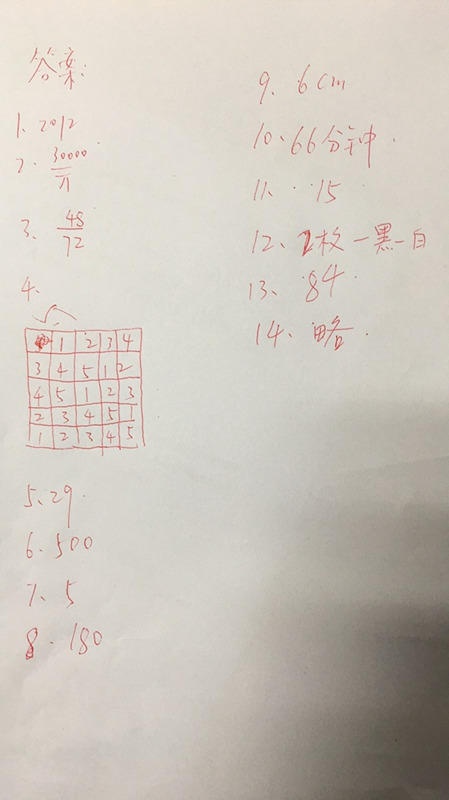 答案:
1、2012
2、30000/π
3、48/72
4、
1 2 3 4
3 4 5 1 2
4 5 1 2 3
2 3 4 5 1
1 2 3 4 5
5、29.
6、500
7、5
8、180
9、6cm
10、66分钟.
11、15
12、2枚一黑一白
13、84.
14、略.